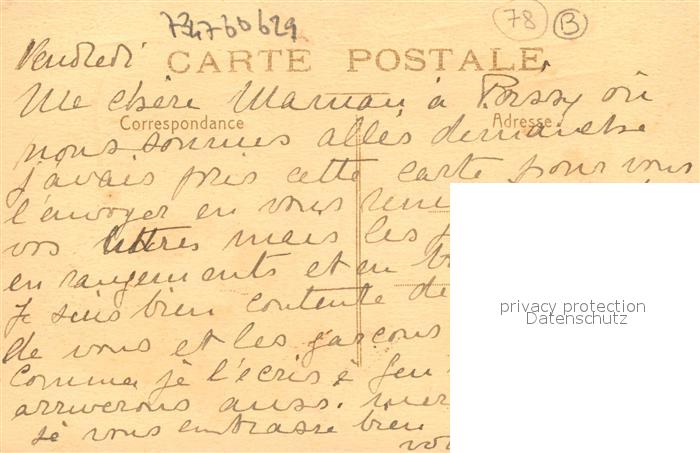 734760629
78 B
Vendredi
CARTE POSTALE
Ma chère Maman à Poissy où
Correspondance Adresse
nous sommes allés dimanche
j'avais pris cette carte pour vous
l'envoyer en vous
vos lettres mais les
en rangements et en
privacy protection
Datenschutz
Je suis bien contente de
de vous et les garçons
comme je l'écris à
arriverons aussi
je vous embrasse bien